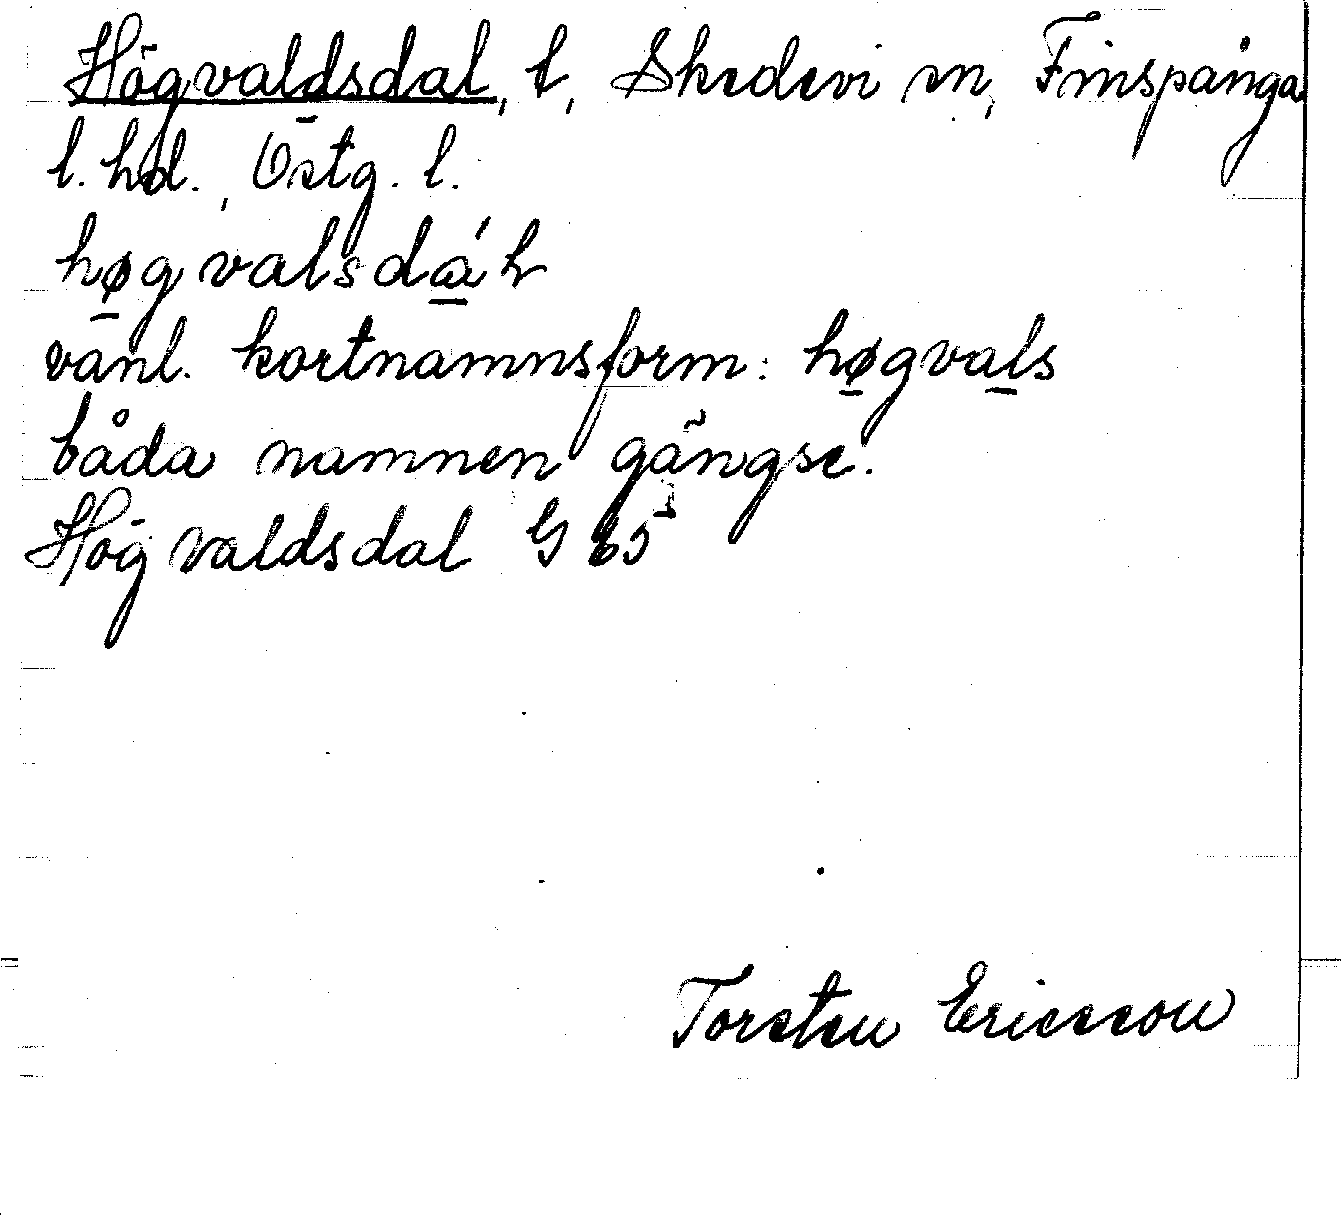 Högvaldsdal, t, Skedevi sn, Finspånga
l. hd., Östg. l.
høgvalsdáł
vanl. kortnamnsform: høgvals
båda namnen gängse.
Högvaldsdal G 65
Torsten Ericsson